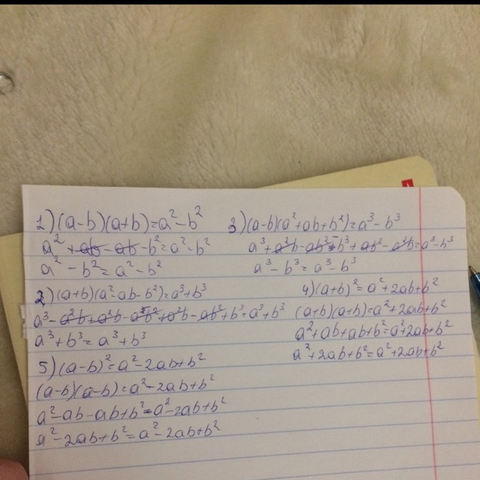 1) (a-b)(a+b)=a²-b²
a²+ab-ab-b²=a²-b²
a²-b²=a²-b²
2) (a+b)(a²ab-b²)=a³+b³
a³+b³=a³+b³
5) (a-b)²=a²-2ab+b²
(a-b)(a-b)=a²-2ab+b²
a²-ab-ab+b²=a²-2ab+b²
a²-2ab+b²=a²-2ab+b²
3) (a-b)(a²+ab+b²)=a³-b³
a³-b³=a³-b³
4) (a+b)²=a²+2ab+b²
(a+b)(a+b)=a²+2ab+b²
a²+ab+ab+b²=a²+2ab+b²
a²+2ab+b²=a²+2ab+b²